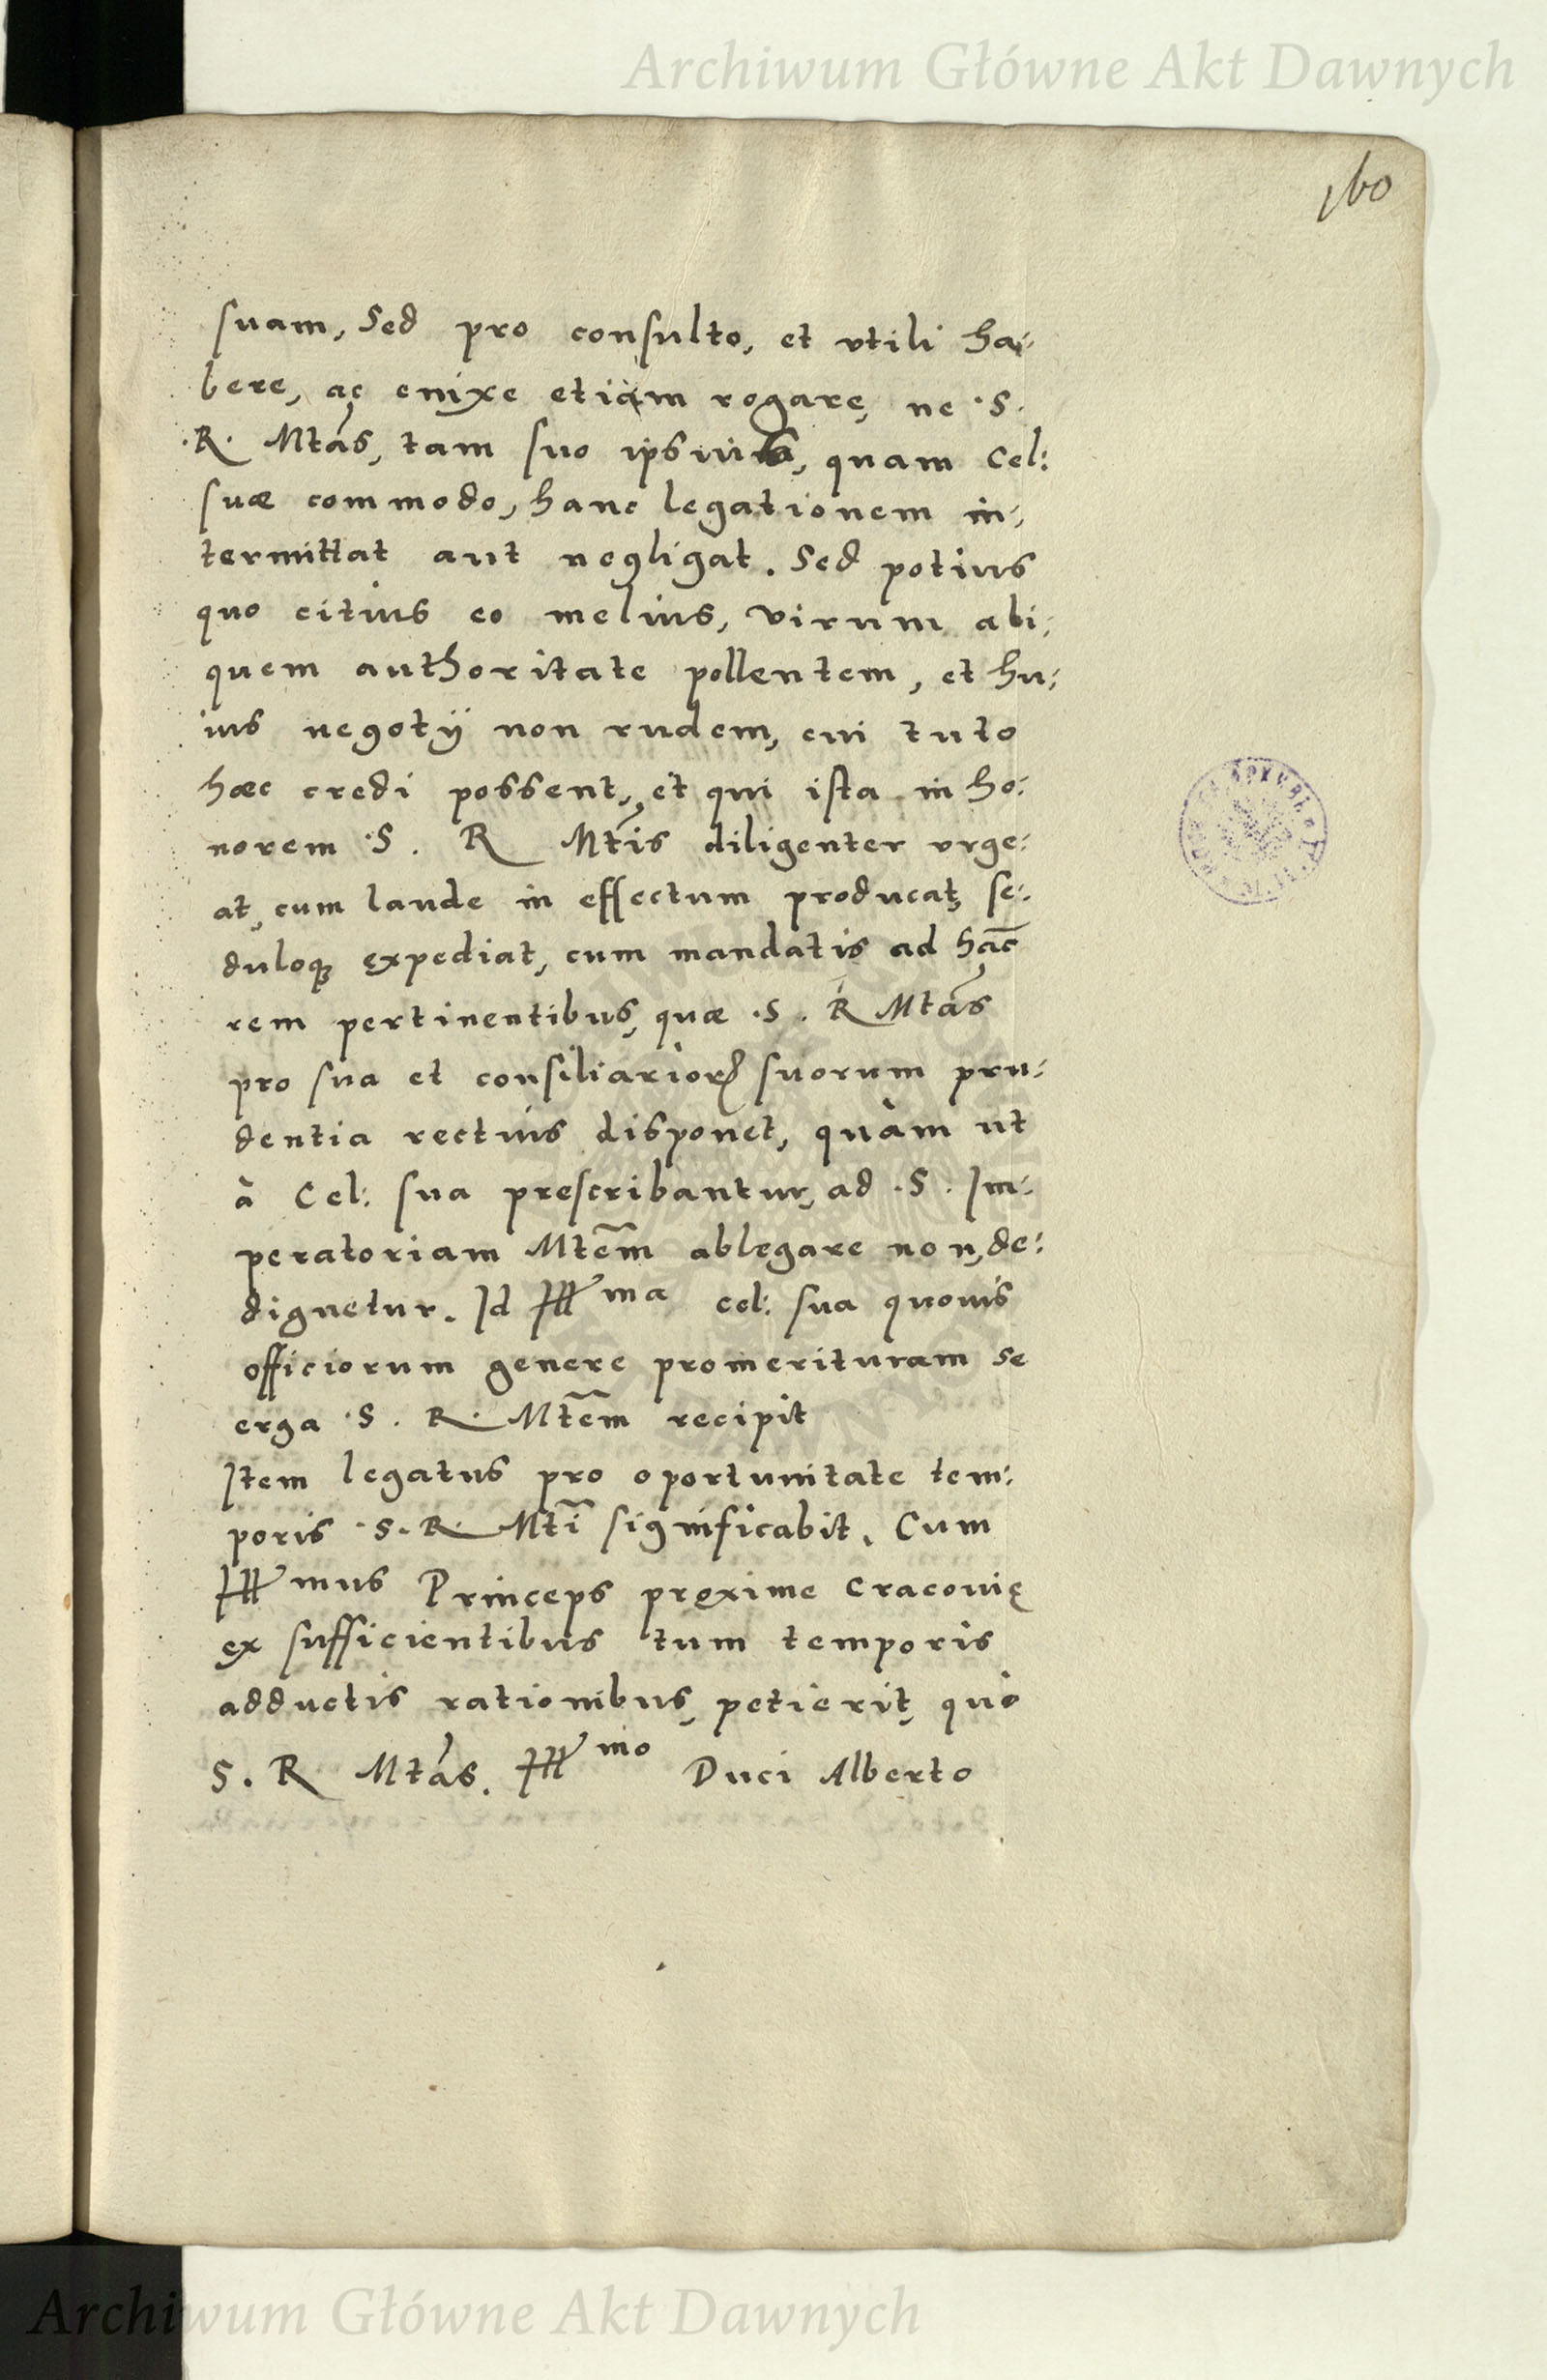 Archiwum Główne Akt Dawnych
160
suam, Sed pro consulto, et vtili ha:
bere, ac enixe etiam rogare, ne .S.
.R. Mtas, tam suo ipsius, quam Cel:
suæ commodo, hanc legationem in:
termittat aut negligat. Sed potius
quo citius eo melius, virum ali:
quem authoritate pollentem, et hu:
ius negotij non rudem, cui tuto
hæc credi possent, et qui ista in ho:
norem S. R Mtis diligenter vrge:
at, cum laude in effectum producat, se:
duloq; expediat, cum mandatis ad hāc
rem pertinentibus, quæ .S. R Mtas
pro sua et consiliarioꝝ suorum pru:
dentia rectius disponet, quàm ut
à Cel: sua prescribantur, ad .S. Im:
peratoriam Mtem ablegare non de:
dignetur. Id Illma cel: sua quouis
officiorum genere promerituram se
erga .S. R. Mtem recipit
Item legatus pro oportunitate tem:
poris .S. R. Mti significabit. Cum
Illmus Princeps proxime Cracouię
ex sufficientibus tum temporis
adductis rationibus, petierit, quo
S. R Mtas. Illmo Duci Alberto
Archiwum Główne Akt Dawnych